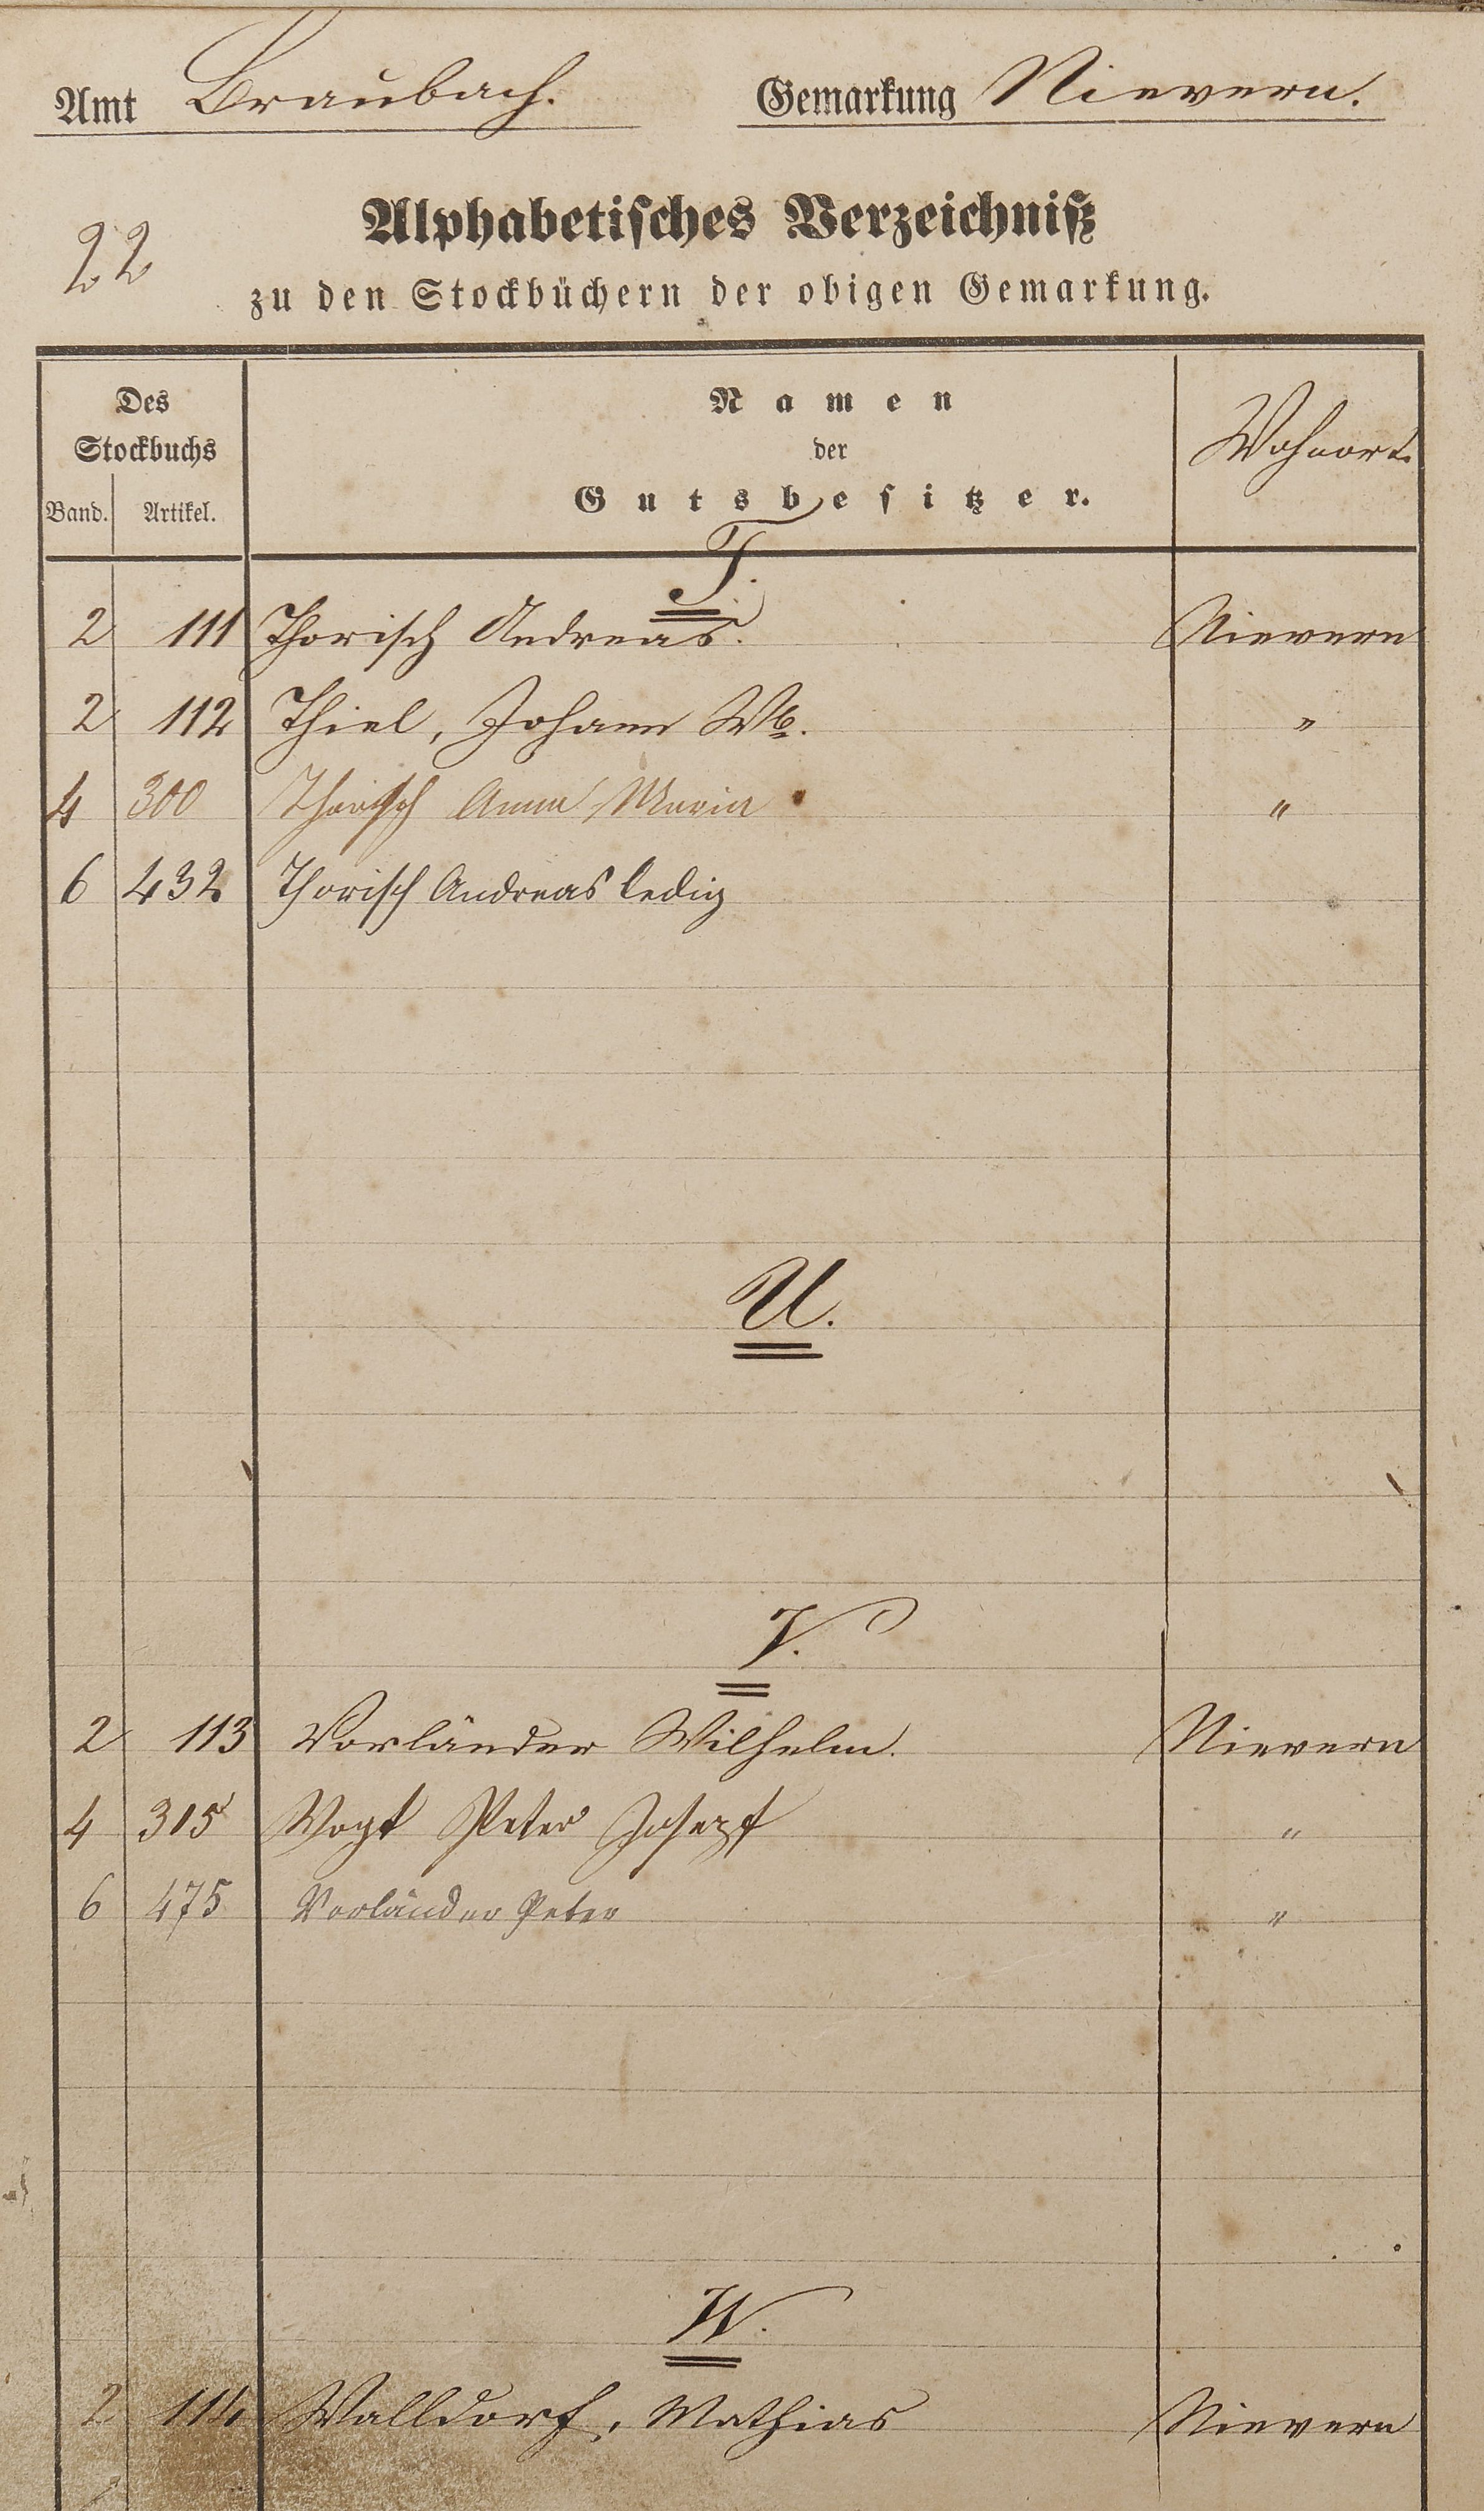 Amt Braubach. Gemarkung Nievern.
22
Alphabetisches Verzeichniß
zu den Stockbüchern der obigen Gemarkung.
Des Stockbuchs
Band. Artikel.
Namen
der
Gutsbesitzer.
Wohnort.
T.
2 111 Thorisch Andreas. Nievern
2 112 Thiel, Johann Wb. "
4 300 Thorisch Anna Maria "
6 432 Thorisch Andreas ledig
U.
V.
2 113 Vorländer Wilhelm. Nievern
4 315 Vogt Peter Josepf "
6 475 Vorländer Peter "
W.
2 114 Walldorf, Mathias Nievern